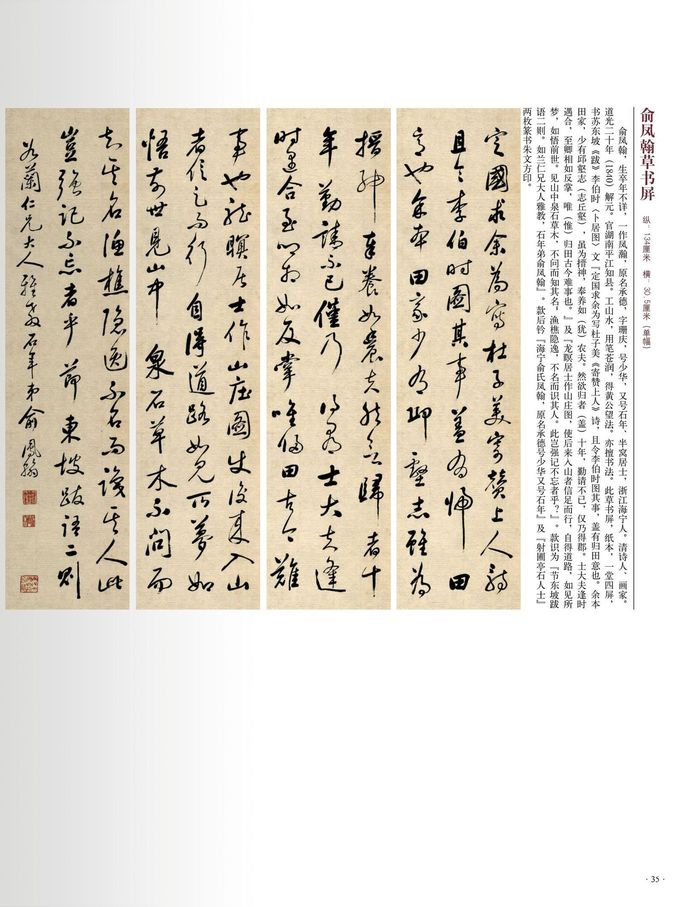 俞凤翰草书屏
纵：134厘米　横：30.5厘米（单幅）
俞凤翰，生卒年不详，一作凤瀚，原名承德，字珊庆，号少华，又号石年、半窝居士，浙江海宁人。清诗人、画家。
道光二十年（1840）解元。官湖南平江知县。工山水，用笔苍润，得黄公望法。亦擅书法。此草书屏，纸本，一堂四屏，
书苏东坡《跋》李伯时《卜居图》文『定国求余为写杜子美《寄赞上人》诗，且令李伯时图其事，盖有归田意也。余本
田家，少有邱壑志（志丘壑），虽为搢神，奉养如（犹）农夫。然欲归者（盖）十年，勤请不已，仅乃得郡。士大夫逢时
遇合，至卿相如反掌，唯（惟）归田古今难事也。』及『龙暝居士作山庄图，使后来入山者信足而行，自得道路，如见所
梦，如悟前世。见山中泉石草木，不问而知其名，渔樵隐逸，不名而识其人。此岂强记不忘者乎？』。款识为『节东坡跋
语二则。如兰仁兄大人雅教，石年弟俞凤翰』。款后钤『海宁俞氏凤翰，原名承德号少华又号石年』及『射圃亭石人士』
两枚篆书朱文方印。
定國求余為寫杜子美寄贊上人詩
且令李伯時圖其事蓋有歸田
意也余本田家少有邱壑志雖為
搢紳奉養如農夫然欲歸者十
年勤請不已僅乃得郡士大夫逢
時遇合至卿相如反掌唯歸田古今難
事也龍暝居士作山庄圖使後來入山
者信足而行自得道路如見所夢如
悟前世見山中泉石草木不問而
知其名漁樵隱逸不名而識其人此
豈強記不忘者乎節東坡跋語二則
如蘭仁兄大人雅教石年弟俞鳳翰
·35·